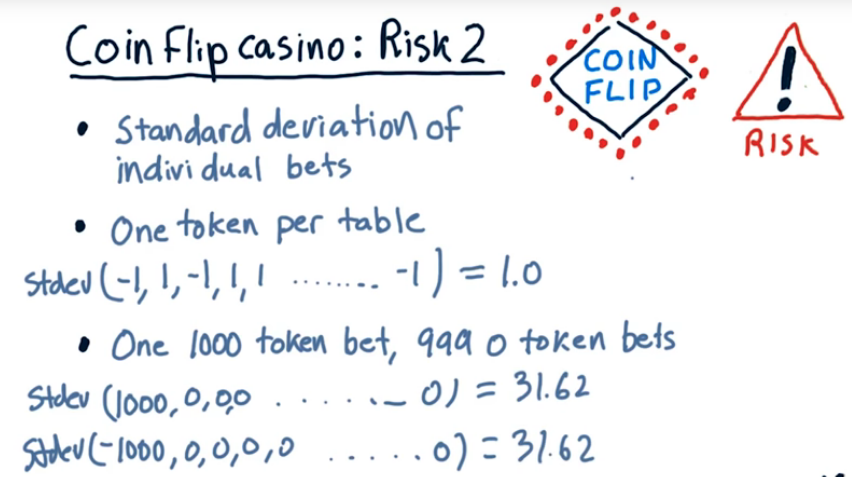 Coin Flip casino: Risk 2
COIN
FLIP
!
RISK
• Standard deviation of
individual bets
• One token per table
Stdev (-1, 1, -1, 1, 1 ........ -1) = 1.0
• One 1000 token bet, 999 0 token bets
Stdev (1000, 0, 0,0 ....... 0) = 31.62
Stdev (-1000, 0, 0, 0, 0 ..... 0) = 31.62